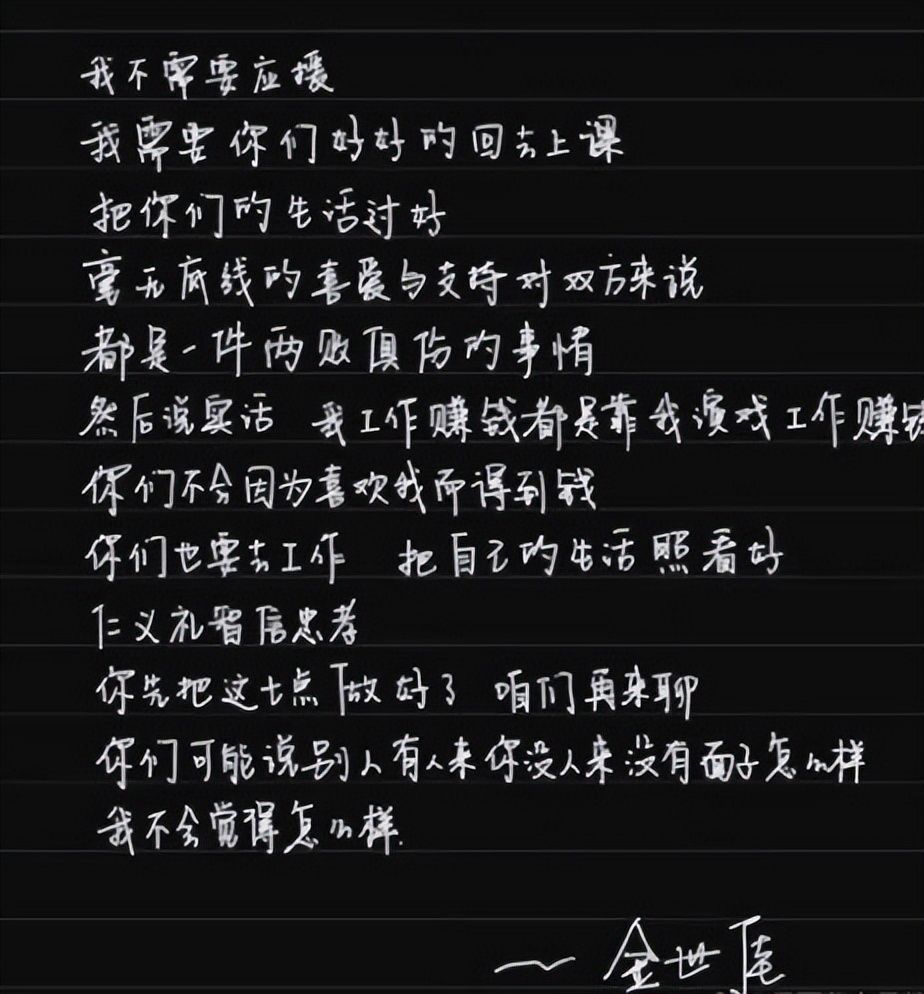 我不需要应援
我需要你们好好的回去上课
把你们的生活过好
毫无底线的喜爱与支持对双方来说
都是一件两败俱伤的事情
然后说实话 我工作赚钱都是靠我演戏工作赚钱
你们不会因为喜欢我而得到钱
你们也要去工作 把自己的生活照看好
仁义礼智信忠孝
你先把这七点做好了 咱们再来聊
你们可能说别人有人来你没人来没有面子怎么样
我不会觉得怎么样.
~ 金世佳